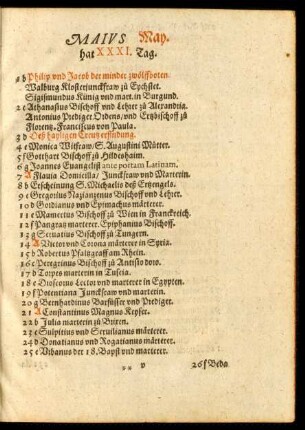 MAIVS May.
hat XXXI. Tag.
a b Philip vnd Jacob der minder zwölffboten.
Walburg Klosterjunckfraw zu Eychstet.
Sigismundus Künig vnd mart. in Burgund.
2 c Athanasius Bischoff vnd Lehrer zu Alexandria.
Antonius Prediger Ordens, vnd Ertzbischoff zu
Florentz. Franciscus von Paula.
3 d Deß hayligen Creutz erfindung.
4 e Monica Witfraw, S. Augustini Mütter.
5 f Gotthart Bischoff zu Hildeshaim.
6 g Joannes Euangelist ante portam Latinam.
7 A Flauia Domicilla, Junckfraw vnd Marterin.
8 b Erscheinung S. Michaelis deß Ertzengels.
9 c Gregorius Nazianzenus Bischoff vnd Lehrer.
10 d Gordianus vnd Epimachus märterer.
11 e Mamertus Bischoff zu Wien in Franckreich.
12 f Pangratz marterer. Epiphanius Bischoff.
13 g Seruatius Bischoff zu Tungern.
14 A Victor vnd Corona märterer in Syria.
15 b Robertus Pfaltzgraff am Rhein.
16 c Peregrinus Bischoff zu Antissiodoro.
17 d Torpes marterin in Tuscia.
18 e Dioscorus Lector vnd marterer in Egypten.
19 f Potentiana Junckfraw vnd marterin.
20 g Bernhardinus Barfüsser vnd Prediger.
21 A Constantinus Magnus Keyser.
22 b Julia marterin zu Brixen.
23 c Sulpitius vnd Seruilianus märterer.
24 d Donatianus vnd Rogatianus märterer.
25 e Vrbanus der 18. Bapst vnd marterer.
26 f Beda